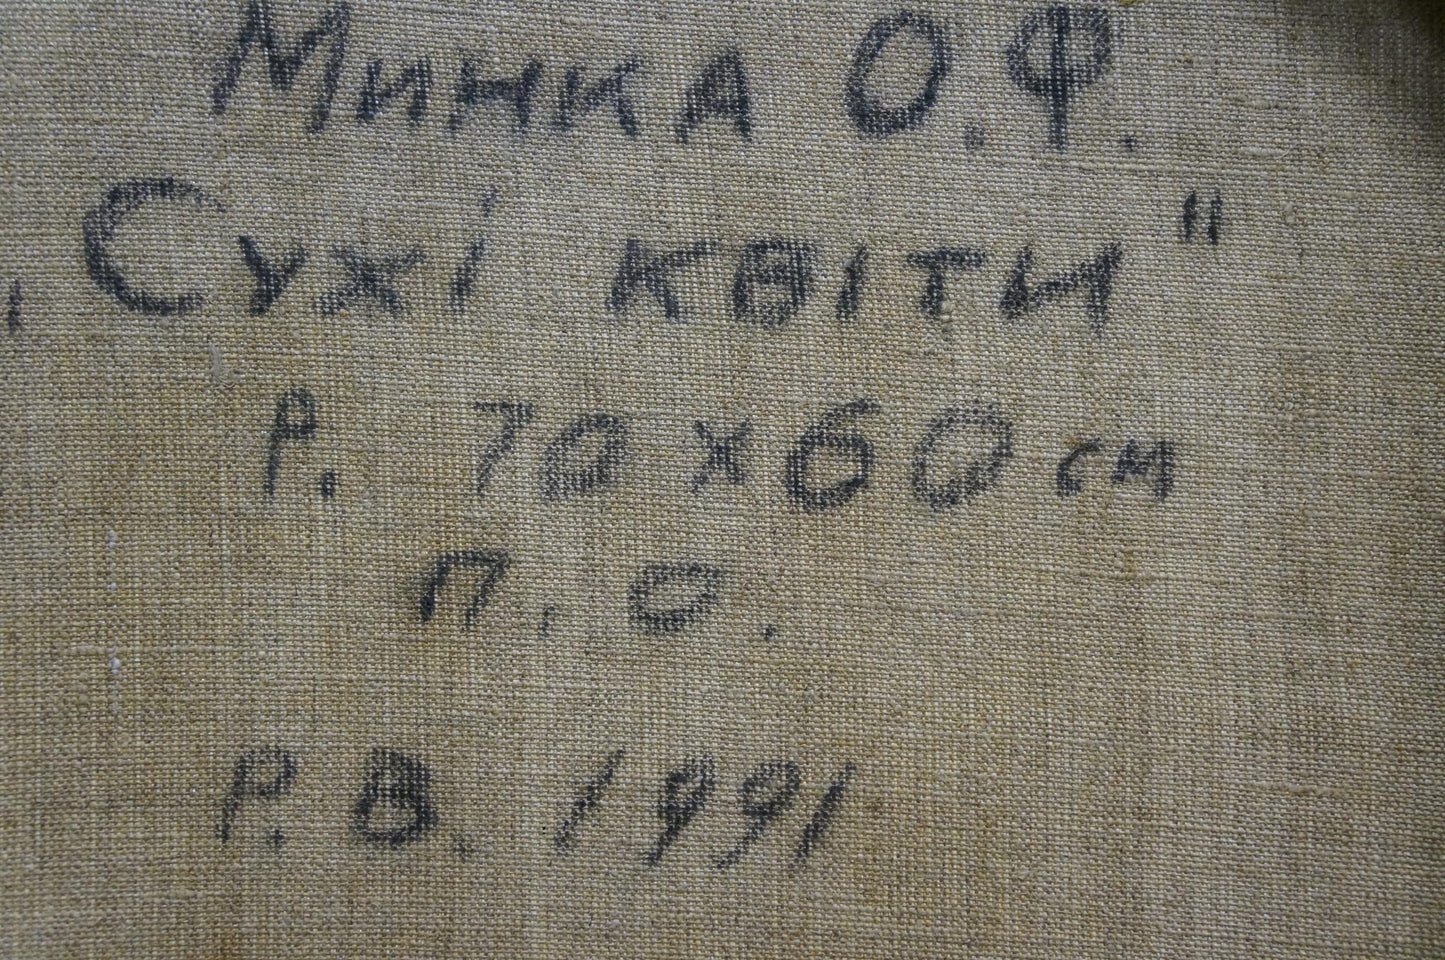 Минка О.Ф.
„Сухі квіти"
Р. 70 х 60 см
П. О.
Р. В. 1991